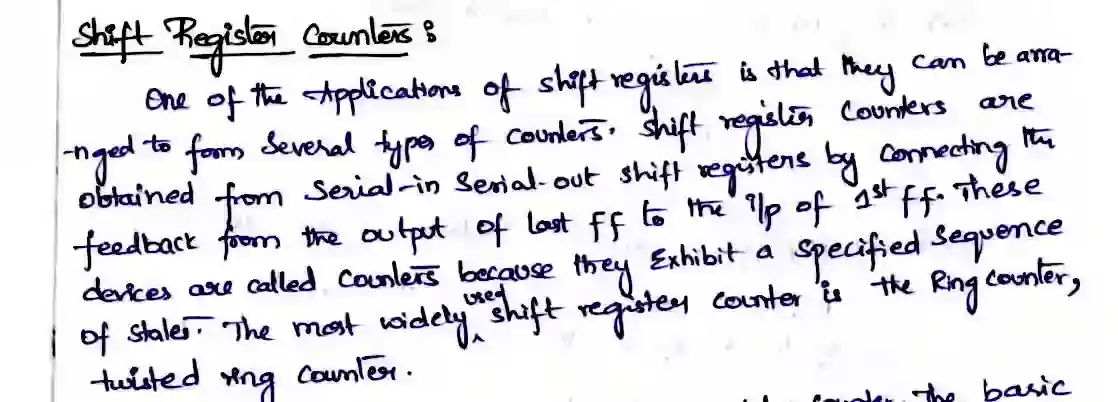 Shift Register Counters :
One of the Applications of shift registers is that they can be arra-
-nged to form Several types of counters. Shift register Counters are
obtained from Serial-in Serial-out shift registers by connecting the
feedback from the output of last ff to the i/p of 1st ff. These
devices are called Counters because they Exhibit a specified Sequence
of states. The most widely used shift register counter is the Ring counter,
twisted ring counter.
the basic